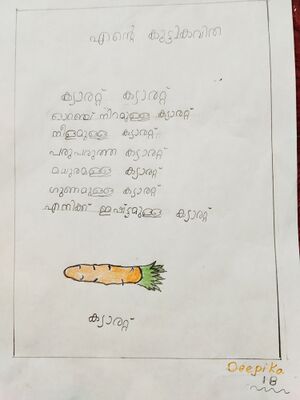 എന്റെ കുട്ടികവിത
ക്യാരറ്റ് ക്യാരറ്റ്
ഓറഞ്ച് നിറമുള്ള ക്യാരറ്റ്
നീളമുള്ള ക്യാരറ്റ്
പരുപരുത്ത ക്യാരറ്റ്
മധുരമുള്ള ക്യാരറ്റ്
ഗുണമുള്ള ക്യാരറ്റ്
എനിക്ക് ഇഷ്ട്ടമുള്ള ക്യാരറ്റ്
ക്യാരറ്റ്
Deepika
18